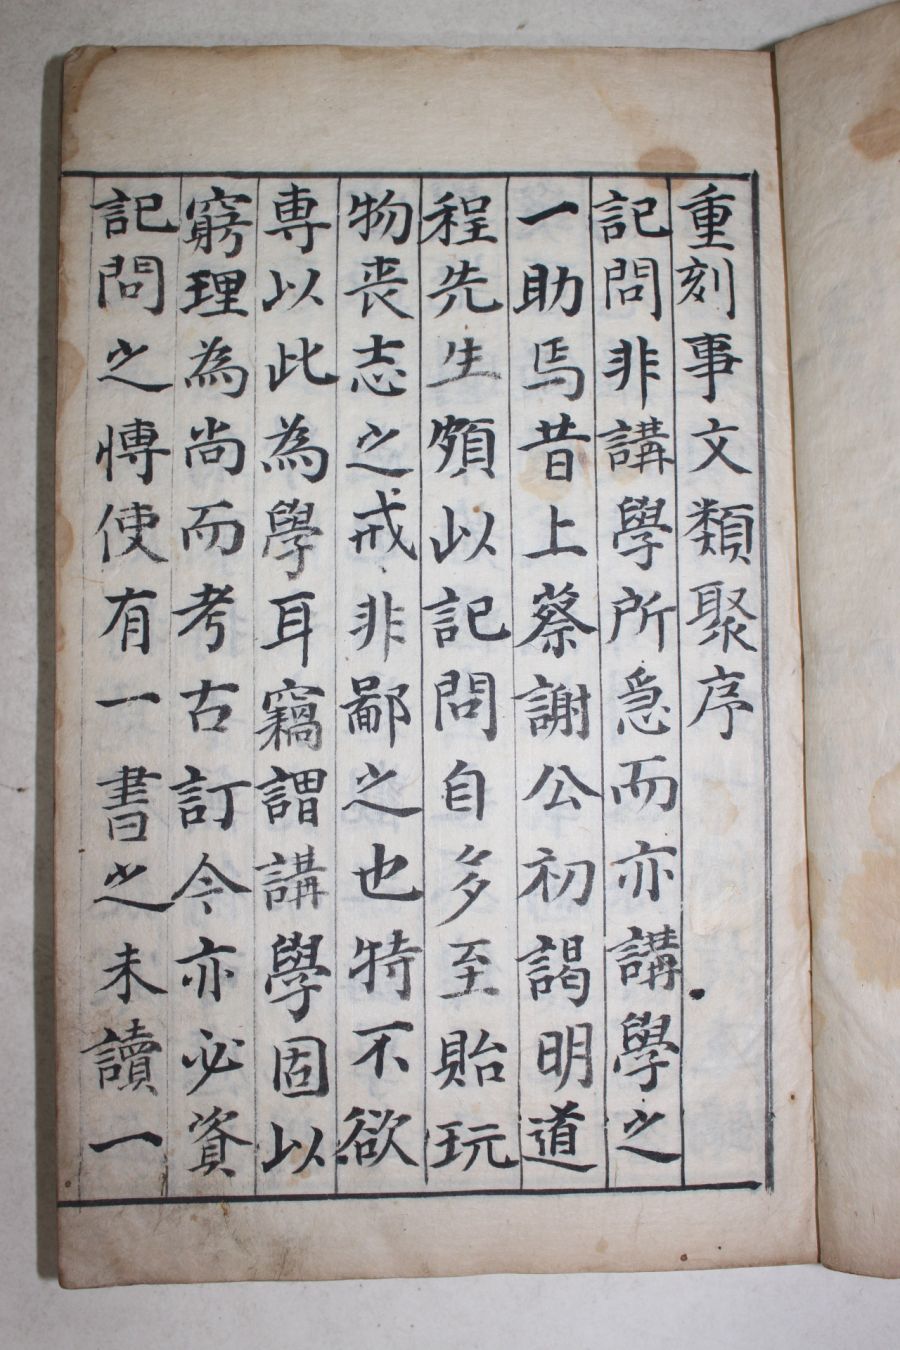 重刻事文類聚序
記問非講學所急而亦講學之
一助焉昔上蔡謝公初謁明道
程先生頗以記問自多至貽玩
物喪志之戒非鄙之也特不欲
専以此為學耳竊謂講學固以
窮理為尚而考古訂今亦必資
記問之愽使有一書之未讀一